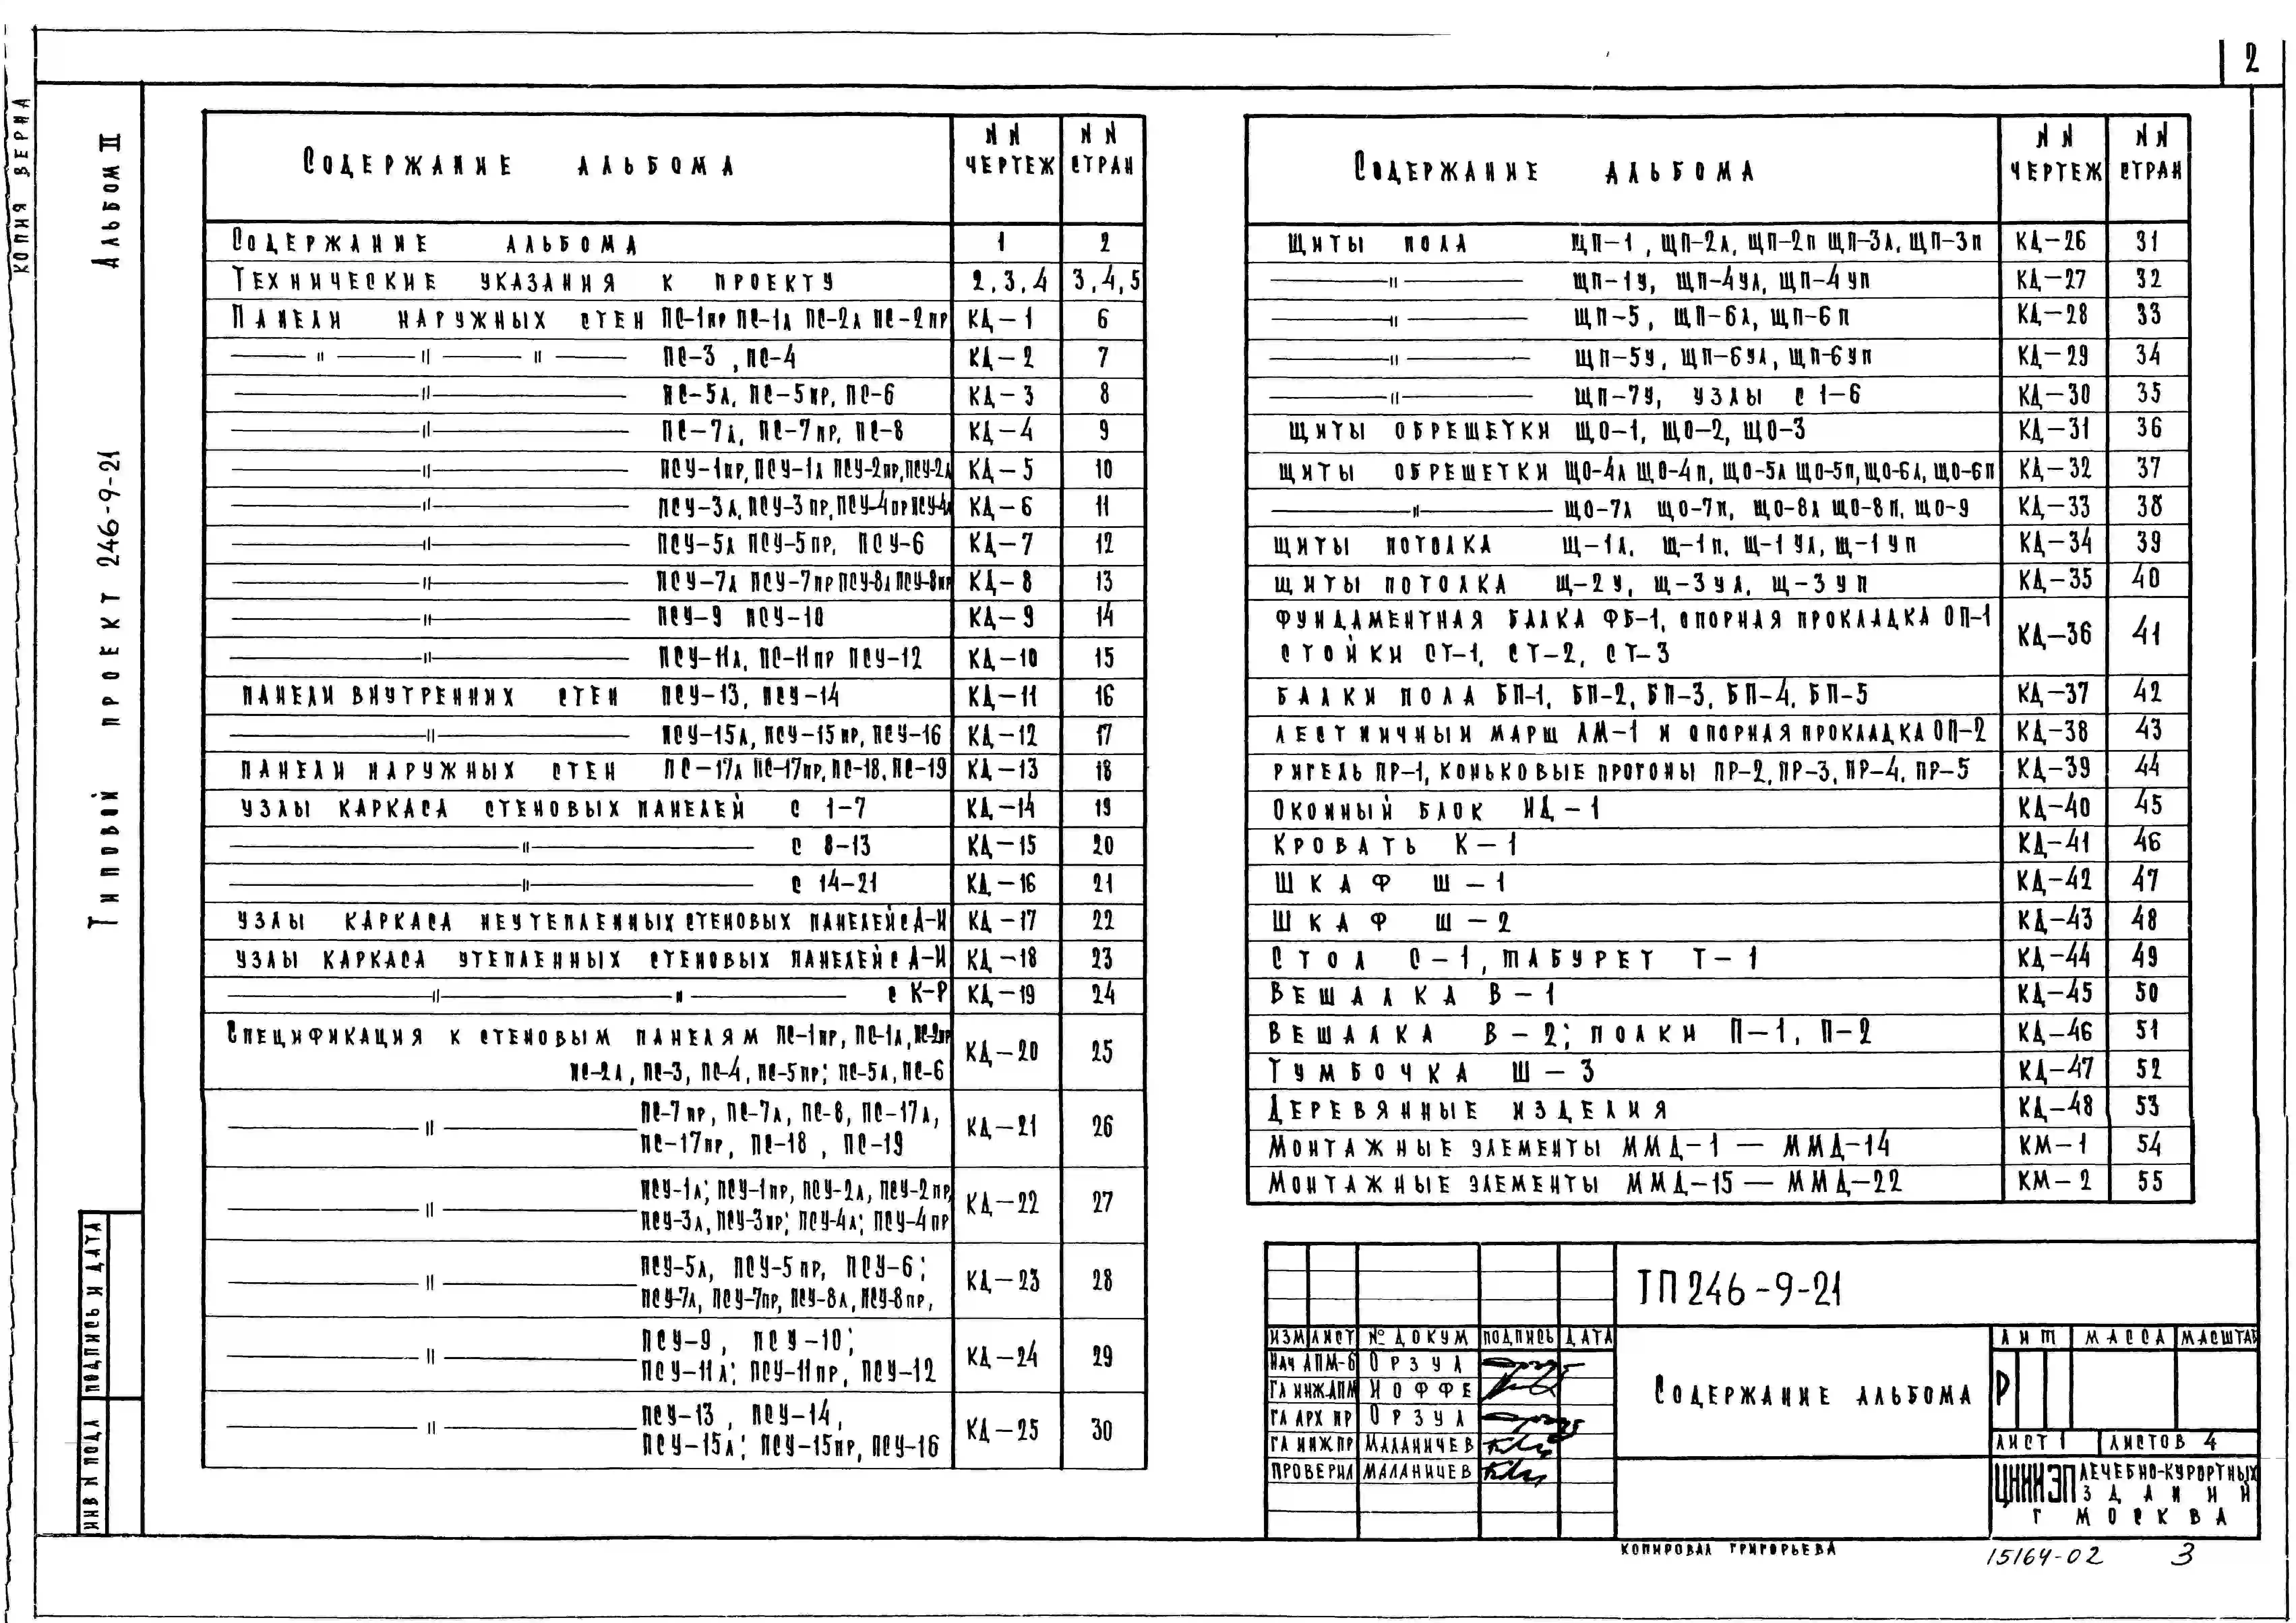 2
КОПИЯ ВЕРНА
Альбом II
Типовой проект 246-9-21
ПОДПИСЬ И ДАТА
ИНВ N ПОДЛ
Содержание альбома | N N ЧЕРТЕЖ | N N СТРАН
Содержание альбома | 1 | 2
Технические указания к проекту | 2,3,4 | 3,4,5
Панели наружных стен ПС-1пр ПС-1л ПС-2л ПС-2пр | КД-1 | 6
— " — " — " — ПС-3, ПС-4 | КД-2 | 7
— " — ПС-5л, ПС-5пр, ПС-6 | КД-3 | 8
— " — ПС-7л, ПС-7пр, ПС-8 | КД-4 | 9
— " — ПСУ-1пр, ПСУ-1л ПСУ-2пр, ПСУ-2л | КД-5 | 10
— " — ПСУ-3л, ПСУ-3пр, ПСУ-4пр ПСУ-4л | КД-6 | 11
— " — ПСУ-5л ПСУ-5пр, ПСУ-6 | КД-7 | 12
— " — ПСУ-7л ПСУ-7пр ПСУ-8л ПСУ-8пр | КД-8 | 13
— " — ПСУ-9 ПСУ-10 | КД-9 | 14
— " — ПСУ-11л, ПС-11пр ПСУ-12 | КД-10 | 15
Панели внутренних стен ПСУ-13, ПСУ-14 | КД-11 | 16
— " — ПСУ-15л, ПСУ-15пр, ПСУ-16 | КД-12 | 17
Панели наружных стен ПС-17л ПС-17пр, ПС-18, ПС-19 | КД-13 | 18
Узлы каркаса стеновых панелей с 1-7 | КД-14 | 19
— " — с 8-13 | КД-15 | 20
— " — с 14-21 | КД-16 | 21
Узлы каркаса неутепленных стеновых панелей с А-И | КД-17 | 22
Узлы каркаса утепленных стеновых панелей с А-И | КД-18 | 23
— " — " — с К-Р | КД-19 | 24
Спецификация к стеновым панелям ПС-1пр, ПС-1л, ПС-2пр
ПС-2л, ПС-3, ПС-4, ПС-5пр; ПС-5л, ПС-6 | КД-20 | 25
— " — ПС-7пр, ПС-7л, ПС-8, ПС-17л,
ПС-17пр, ПС-18, ПС-19 | КД-21 | 26
— " — ПСУ-1л; ПСУ-1пр, ПСУ-2л, ПСУ-2пр,
ПСУ-3л, ПСУ-3пр; ПСУ-4л; ПСУ-4пр | КД-22 | 27
— " — ПСУ-5л, ПСУ-5пр, ПСУ-6;
ПСУ-7л, ПСУ-7пр, ПСУ-8л, ПСУ-8пр, | КД-23 | 28
— " — ПСУ-9, ПСУ-10;
ПСУ-11л; ПСУ-11пр, ПСУ-12 | КД-24 | 29
— " — ПСУ-13, ПСУ-14,
ПСУ-15л; ПСУ-15пр, ПСУ-16 | КД-25 | 30
Содержание альбома | N N ЧЕРТЕЖ | N N СТРАН
Щиты пола ЩП-1, ЩП-2л, ЩП-2п ЩП-3л, ЩП-3п | КД-26 | 31
— " — ЩП-1У, ЩП-4УЛ, ЩП-4УП | КД-27 | 32
— " — ЩП-5, ЩП-6Л, ЩП-6П | КД-28 | 33
— " — ЩП-5У, ЩП-6УЛ, ЩП-6УП | КД-29 | 34
— " — ЩП-7У, узлы с 1-6 | КД-30 | 35
Щиты обрешетки ЩО-1, ЩО-2, ЩО-3 | КД-31 | 36
Щиты обрешетки ЩО-4л ЩО-4п, ЩО-5л ЩО-5п, ЩО-6л, ЩО-6п | КД-32 | 37
— " — ЩО-7л ЩО-7п, ЩО-8л ЩО-8п, ЩО-9 | КД-33 | 38
Щиты потолка Щ-1л, Щ-1п, Щ-1УЛ, Щ-1УП | КД-34 | 39
Щиты потолка Щ-2У, Щ-3УЛ, Щ-3УП | КД-35 | 40
Фундаментная балка ФБ-1, опорная прокладка ОП-1
стойки СТ-1, СТ-2, СТ-3 | КД-36 | 41
Балки пола БП-1, БП-2, БП-3, БП-4, БП-5 | КД-37 | 42
Лестничный марш ЛМ-1 и опорная прокладка ОП-2 | КД-38 | 43
Ригель ПР-1, коньковые прогоны ПР-2, ПР-3, ПР-4, ПР-5 | КД-39 | 44
Оконный блок НД-1 | КД-40 | 45
Кровать К-1 | КД-41 | 46
Шкаф Ш-1 | КД-42 | 47
Шкаф Ш-2 | КД-43 | 48
Стол С-1, табурет Т-1 | КД-44 | 49
Вешалка В-1 | КД-45 | 50
Вешалка В-2; полки П-1, П-2 | КД-46 | 51
Тумбочка Ш-3 | КД-47 | 52
Деревянные изделия | КД-48 | 53
Монтажные элементы ММД-1 — ММД-14 | КМ-1 | 54
Монтажные элементы ММД-15 — ММД-22 | КМ-2 | 55
ТП 246-9-21
ИЗМ ЛИСТ № ДОКУМ ПОДПИСЬ ДАТА
НАЧ АПМ-6 ОРЗУЛ
ГЛ ИНЖ АПМ ИОФФЕ
ГЛ АРХ ПР ОРЗУЛ
ГЛ ИНЖ ПР МАЛАНИЧЕВ
ПРОВЕРИЛ МАЛАНИЧЕВ
Содержание альбома
ЛИТ МАССА МАСШТАБ
Р
ЛИСТ 1 ЛИСТОВ 4
ЦНИИЭП ЛЕЧЕБНО-КУРОРТНЫХ
ЗДАНИЙ
Г МОСКВА
КОПИРОВАЛ ГРИГОРЬЕВА
15164-02 3